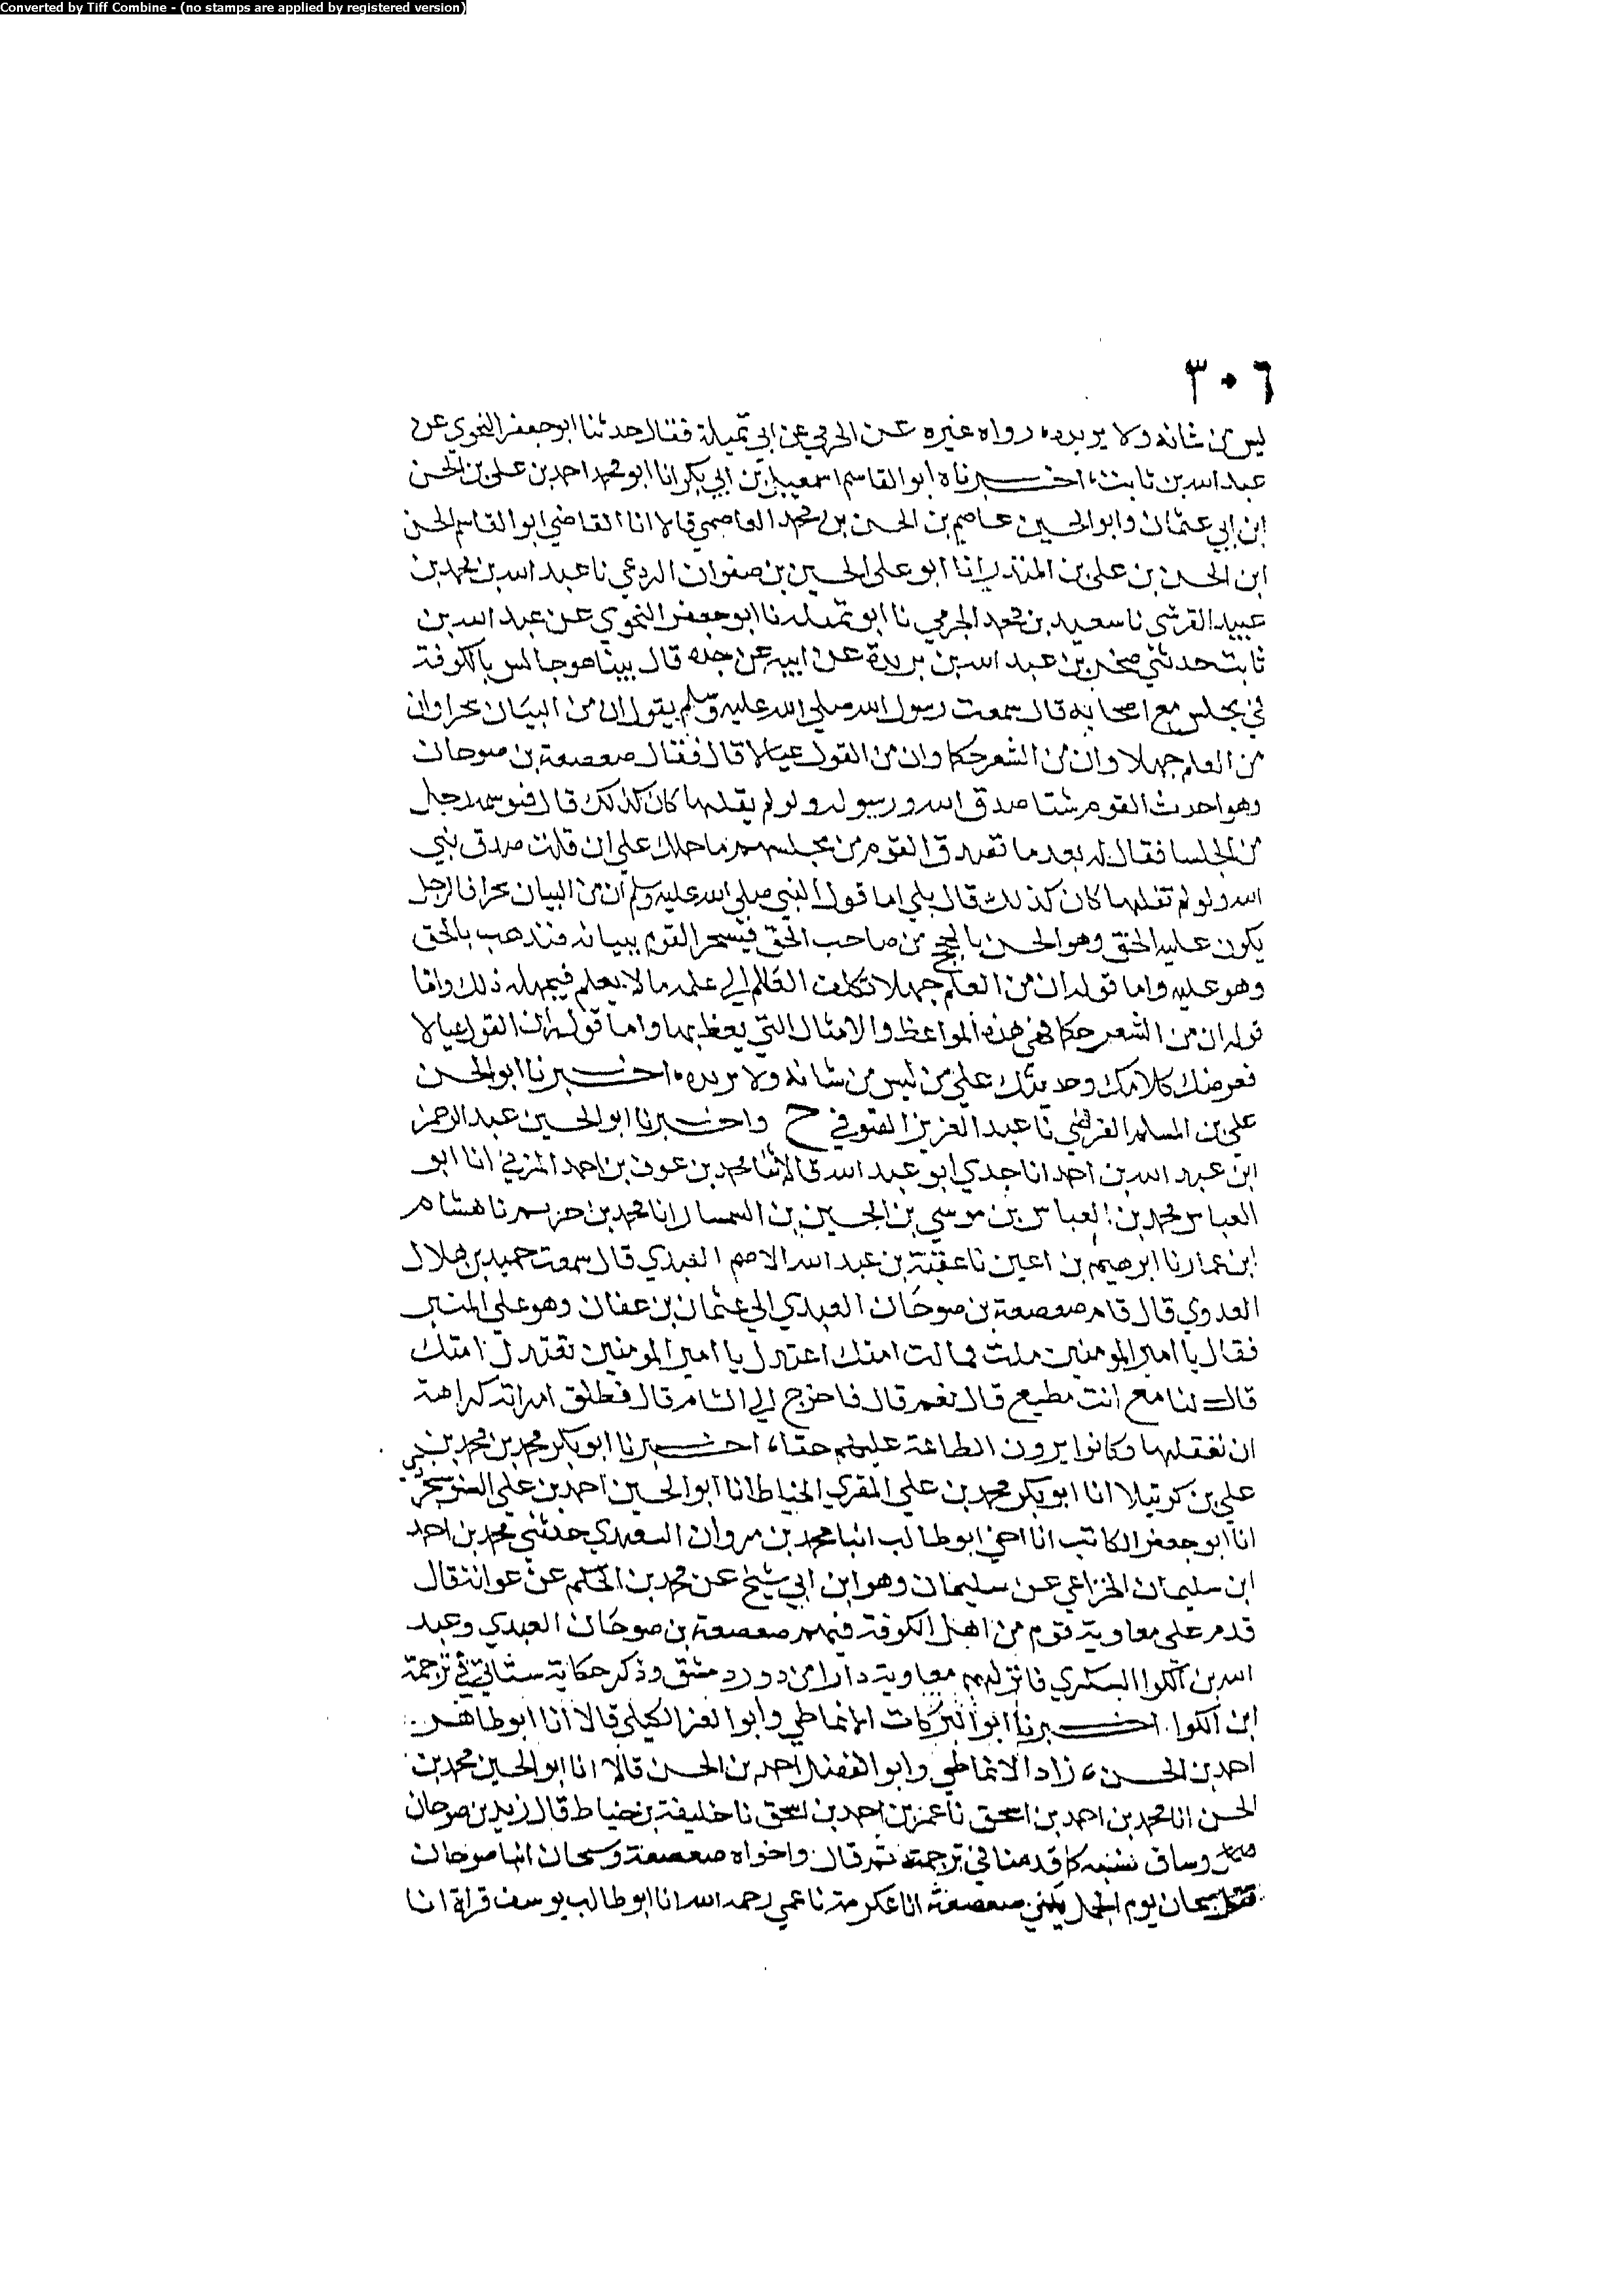 Converted by Tiff Combine - (no stamps are applied by registered version)
٣٠٦
ليس من شانه ولا يريده، رواه غيره عن الجرمي عن ابي تميلة فقال حدثنا ابو جعفر النحوي عن
عبد الله بن ثابت، اخبرناه ابو القاسم اسمعيل بن ابي بكر انا ابو محمد احمد بن علي بن الحسن
ابن ابي عثمان وابو الحسين عاصم بن الحسن بن محمد العاصمي قالا انا القاضي ابو القاسم الحسن
ابن الحسن بن علي بن المنذر انا ابو علي الحسين بن صفوان البردعي نا عبد الله بن محمد بن
عبيد القرشي نا سعيد بن محمد الجرمي نا ابو تميله نا ابو جعفر النحوي عن عبد الله بن
ثابت حدثني صخر بن عبد الله بن بريدة عن ابيه عن جده قال بينا هو جالس بالكوفة
في مجلس مع اصحابه قال سمعت رسول الله صلي الله عليه وسلم يقول ان من البيان سحرا وان
من العلم جهلا وان من الشعر حكما وان من القول عيالا قال فقال صعصعة بن صوحان
وهو احدث القوم سنا صدق الله ورسوله ولو لم يقلها كان كذلك قال فتوسمه رجل
من الجلسا فقال له بعد ما تصدق القوم من مجلسهم ما حملك علي ان قلت صدق نبي
الله ولو لم تقلها كان كذلك قال بلي اما قول النبي صلي الله عليه وسلم ان من البيان سحرا فالرجل
يكون عليه الحق وهو الحن بالحجج من صاحب الحق فيسحر القوم ببيانه فتذهب بالحق
وهو عليه واما قوله ان من العلم جهلا تكلف العالم الي علمه ما لا يعلم فيجهله ذلك واما
قوله ان من الشعر حكما فهي هذه المواعظ والامثال التي يعظ بها واما قوله ان القول عيالا
فعرضك كلامك وحديثك علي من ليس من شانه ولا يريده، اخبرنا ابو الحسن
علي بن المسلم الفرضي نا عبد العزيز الصوفي ح واخبرنا ابو الحسين عبد الرحمن
ابن عبد الله بن احمد انا جدي ابو عبد الله قالا انا محمد بن عوف بن احمد المزني انا ابو
العباس محمد بن العباس بن موسي بن الحسين بن السمسار انا محمد بن خريم نا هشام
ابن عمار نا ابرهيم بن اعين نا عقبة بن عبد الله الاصم العبدي قال سمعت حميد بن هلال
العدوي قال قام صعصعة بن صوحان العبدي الي عثمان بن عفان وهو علي المنبر
فقال يا امير المومنين ملت فمالت امتك اعتدل يا امير المومنين تعتدل امتك
قال لنا مع انت مطيع قال نعم قال فاخرج الي الشام قال فطلق امراته كراهة
ان نعقلها وكانوا يرون الطاعة عليهم حقا، اخبرنا ابو بكر محمد بن محمد بن
علي بن كرتيلا انا ابو بكر محمد بن علي المقري الخياط انا ابو الحسين احمد بن علي السوسنجردي
انا ابو جعفر الكاتب انا اخي ابو طالب انبا محمد بن مروان السعيدي حدثني محمد بن احمد
ابن سليمان الخزاعي عن سليمان وهو ابن ابي شيخ عن محمد بن الحكم عن عوانة قال
قدم علي معاوية قوم من اهل الكوفة فيهم صعصعة بن صوحان العبدي وعبد
الله بن الكوا اليشكري فانزلهم معاوية دارا من دور دمشق وذكر حكاية ستاتي في ترجمة
ابن الكوا. اخبرنا ابو البركات الانماطي وابو العز الكيلي قالا انا ابو طاهر
احمد بن الحسن، زاد الانماطي وابو الفضل احمد بن الحسن قالا انا ابو الحسين محمد بن
الحسن انا محمد بن احمد بن اسحق نا عمر بن احمد بن اسحق نا خليفة بن خياط قال زيد بن صوحان
وساق نسبه كما قدمنا في ترجمته ثم قال واخواه صعصعة وسيحان ابنا صوحان
قتل سيحان يوم الجمل يكني صعصعة انا عكرمة نا عمي رحمه الله انا ابو طالب يوسف قراة انا